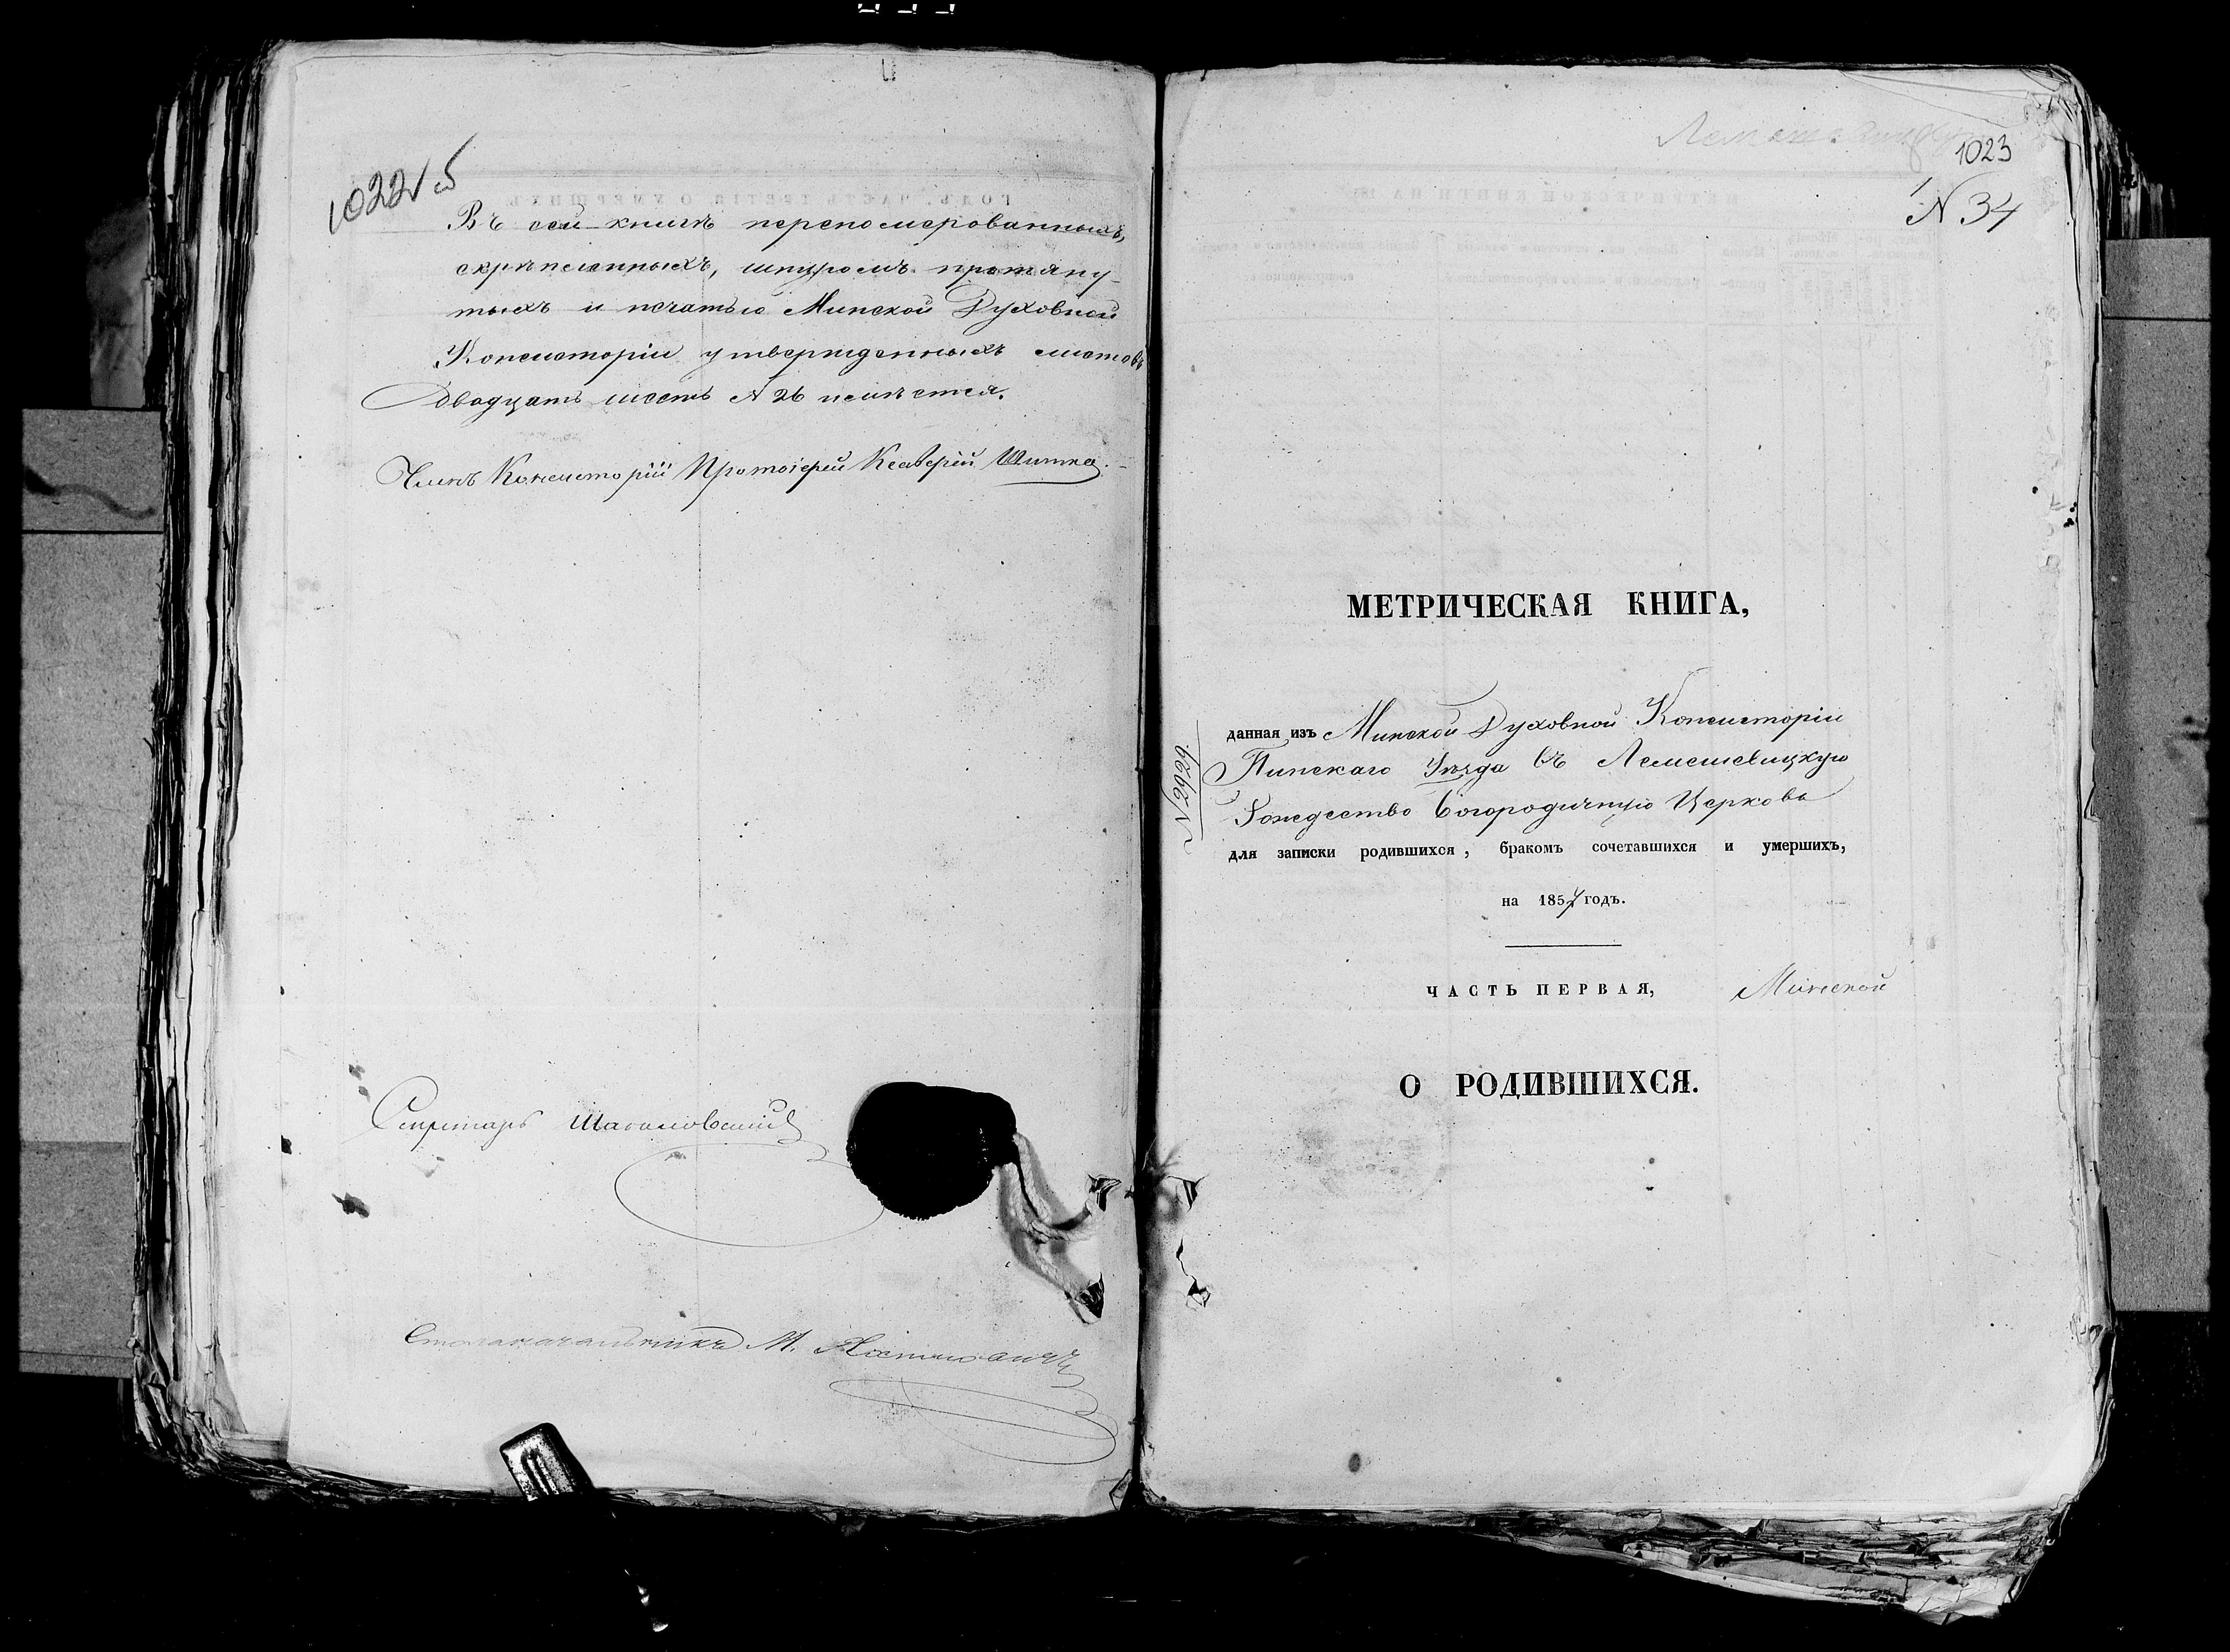 1022 об
Въ сей книгѣ перепомерованныхъ,
скрѣпленныхъ, шнуромъ протяну-
тыхъ и печатью Минской Духовной
Консисторіи утвержденныхъ листовъ
двадцать шесть N 26 имѣется.
Членъ Консисторіи Протоіерей Ксаверій
Секретарь
Столоначальникъ М.
1023
N 34
МЕТРИЧЕСКАЯ КНИГА,
данная изъ Минской Духовной Консисторіи
Пинскаго Уѣзда въ Лемешевицкую
Рождество Богородичную Церковь
для записки родившихся, бракомъ сочетавшихся и умершихъ,
на 1857 годъ.
ЧАСТЬ ПЕРВАЯ,
Минской
О РОДИВШИХСЯ.